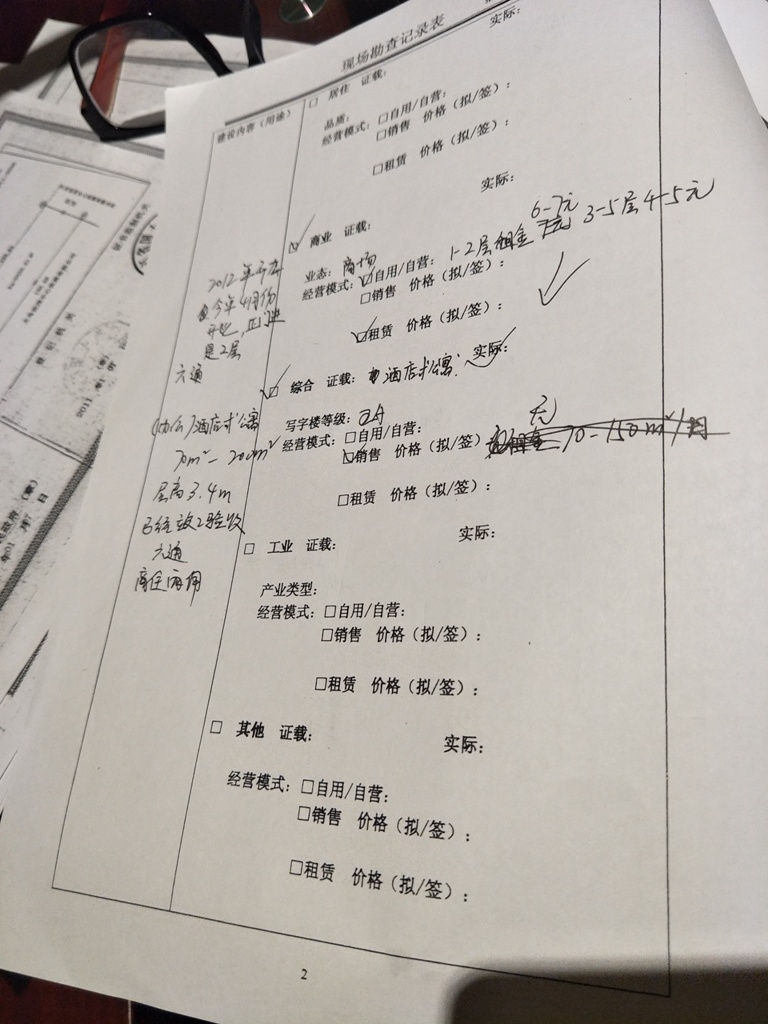 现场勘查记录表
建设内容（用途）
□ 居住 证载： 实际：
品质：
经营模式：□自用/自营：
□销售 价格（拟/签）：
□租赁 价格（拟/签）：
☑ 商业 证载： 实际：
业态：商场
经营模式：☑自用/自营：1-2层租金 6-7元 3-5层4-5元
□销售 价格（拟/签）：
☑租赁 价格（拟/签）：
2012年
今年4月份
是2层
六通
☑ 综合 证载：酒店式公寓 实际：
写字楼等级：
经营模式：□自用/自营：
☑销售 价格（拟/签） 无 70-150m²/月
□租赁 价格（拟/签）：
（办公）酒店式公寓
70m²-200m²
层高3.4m
已经竣工验收
六通
商住两用
□ 工业 证载： 实际：
产业类型：
经营模式：□自用/自营：
□销售 价格（拟/签）：
□租赁 价格（拟/签）：
□ 其他 证载： 实际：
经营模式：□自用/自营：
□销售 价格（拟/签）：
□租赁 价格（拟/签）：
2